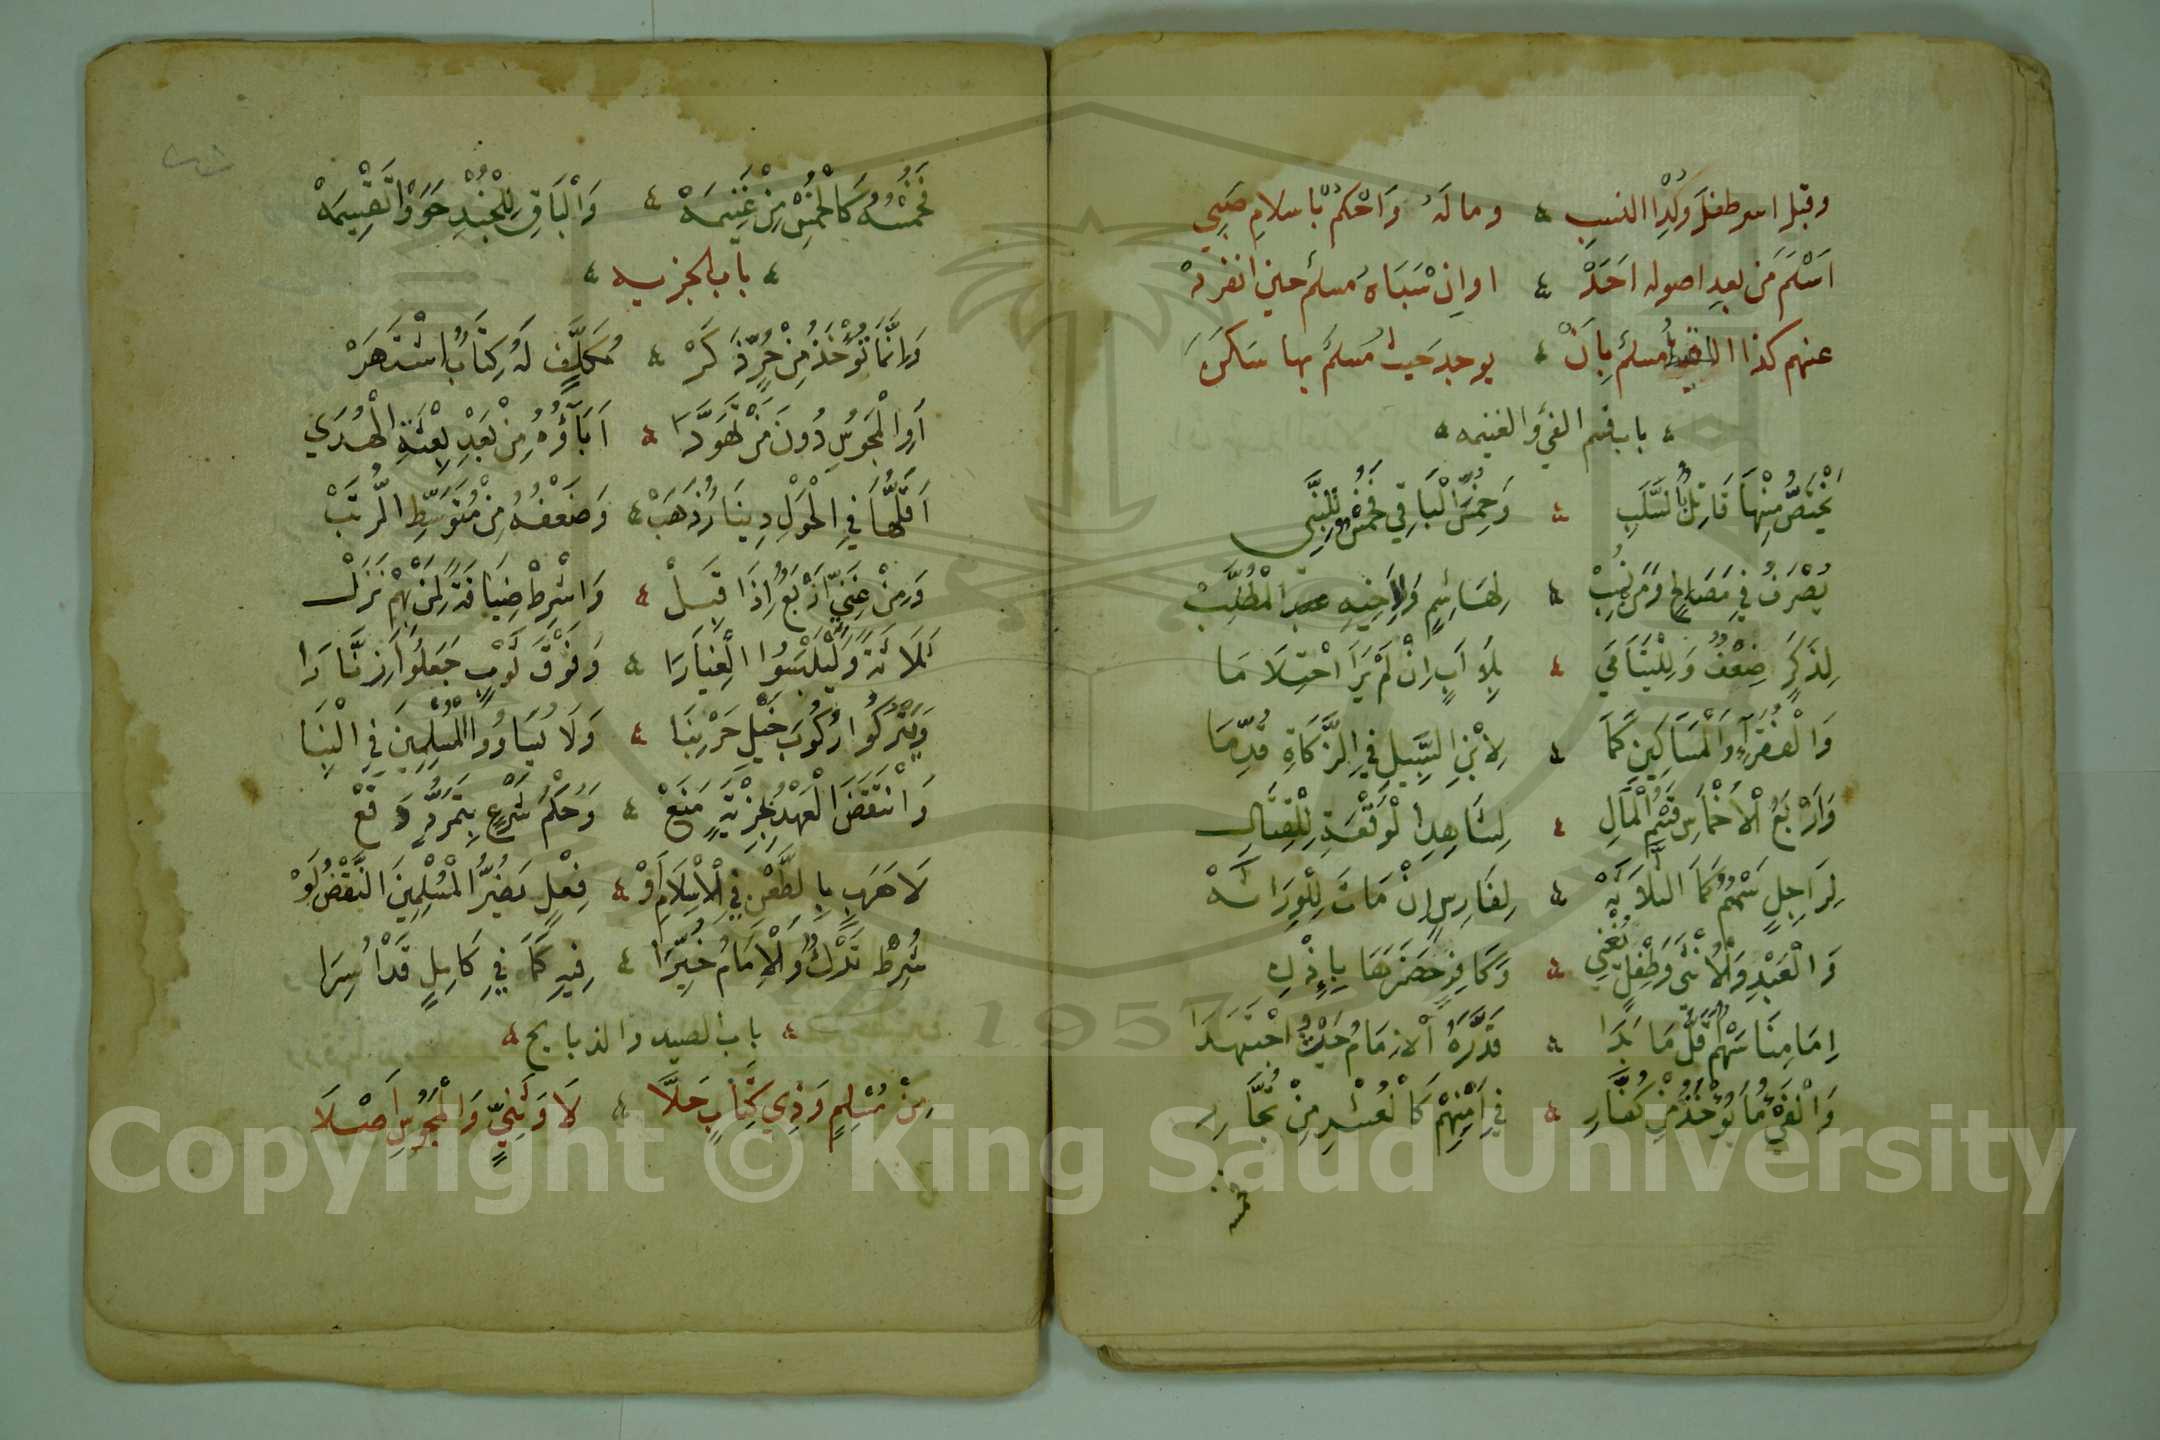 وقبل اسر طفل ولد النسب ؞ وماله وَاحْكُمْ بْاسلامِ صَبِي
اَسْلَمَ مَن بعدِ اصوله احَدْ ؞ اوان سَبَاهُ مسلم حين انفردْ
عنهم كذا اللقيط مسلم بِاَنْ ؞ يوجد حَيث مُسلم بها سَكَنَ
؞ باب قسم الفئ والغنيمه ؞
يَخْتَصُّ مِنْهَا قَاتِلٌ بِالسَّلَبِ ؞ وَخُمِّسَ الْبَاقِي فَخُمْسٌ لِلنَّبِي
يُصْرَفُ فِي مَصَالِحٍ وَمَنْ نُسِبْ ؞ لِهَاشِمٍ وَلِاَخِيهِ المْطُلِّبْ
لِذَكَرٍ ضِعْفٌ وَلِلْيَتَامَي ؞ بِلَا اَبٍ اِنْ لَمْ يَرَ احْتِلَامَا
وَالْفُقَرَآءِ وَالْمَسَاكِينِ كَمَا ؞ لِابْنِ السَّبِيلِ فِي الزَّكَاةِ قُدِّمَا
وَاَرْبَعُ الْاَخْمَاسِ قَسْمُ الْمَالِ ؞ لِشَاهِدِ الْوَقْعَةِ لِلْقِتَالِ
لِرَاجِلٍ سَهْمٌ كَمَا الثَّلَاثَهْ ؞ لِفَارِسٍ اِنْ مَاتَ لِلْوِرَاثَهْ
وَالْعَبْدِ وَالْاُنْثَى وَطِفْلٍ يُغْنِي ؞ وَكَافِرٍ حَضَرَهَا بِاِذْنِ
اِمَامِنَا سَهْمٌ اَقَلُّ مَا بَدَا ؞ قَدَّرَهُ الْاِمَامُ حَيْثُ اجْتَهَدَا
وَالْفَيْ مَا يُؤْخَذُ مِنْ كُفَّارِ ؞ فِي اَمْنِهِمْ كَالْعُشْرِ مِنْ تُجَّارِ
فخمسه
فَخُمْسُهُ كَالْخُمْسِ مِنْ غَنِيمَهْ ؞ وَالْبَاقِ لِلْجُنْدِ حَوَوْا تَقْسِيمَهْ
؞ باب الجزيه ؞
وَاِنَّمَا تُؤْخَذُ مِنْ حُرٍّ ذَكَرْ ؞ مُكَلَّفٍ لَهُ كِتَابٌ اشْتَهَرْ
اَوِ الْمَجُوسِ دُونَ مَنْ تَهَوَّدَا ؞ اَبَآؤُهُ مِنْ بَعْدِ بِعْثَةِ الْهُدَي
اَقَلُّهَا فِي الْحَوْلِ دِينَارٌ ذَهَبْ ؞ وَضِعْفُهُ مِنْ مُتَوَسِّطِ الرُّتَبْ
وَمِنْ غَنِيٍّ اَرْبَعٌ اِذَا قَبِلْ ؞ وَاشْرِطْ ضِيَافَةً لِمَنْ بِهِمْ نَزَلْ
ثَلَاثَةً وَلْيَلْبَسُوا الْغِيَارَا ؞ وَفَوْقَ ثَوْبٍ جَعَلُوا زُنَّارَا
وَيَتْرُكُوا رُكُوبَ خَيْلِ حَرْبِنَا ؞ وَلَا يُسَاوُوا الْمُسْلِمِينَ فِي الْبِنَا
وَانْتَقَضَ الْعَهْدُ بِجِزْيَةٍ مَنَعْ ؞ وَحُكْمُ شَرْعٍ بِتَمَرُّدٍ وَقَعْ
لَا هَرَبٍ بِالطَّعْنِ فِي الْاِسْلَامِ اَوْ ؞ فِعْلٍ يَضُرُّ الْمُسْلِمِينَ النَّقْضُ لَوْ
شُرِطْ تَرْكٌ وَالْاِمَامُ خُيِّرَا ؞ فِيهِ كَمَا فِي كَامِلٍ قَدْ اُسِرَا
؞ باب الصيد والذبايح ؞
مِنْ مُسْلِمٍ وَذِي كِتَابٍ حَلَّا ؞ لَا وَثَنِيٍّ وَالْمَجُوسِ اَصْلَا
Copyright © King Saud University
1957